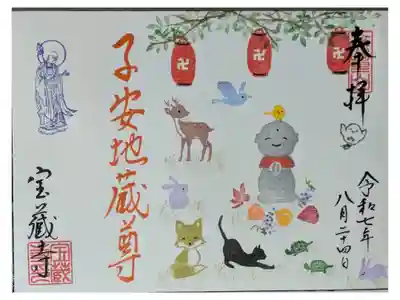 奉拝
令和七年
八月二十四日
子安地蔵尊
宝蔵寺
卍
卍
卍